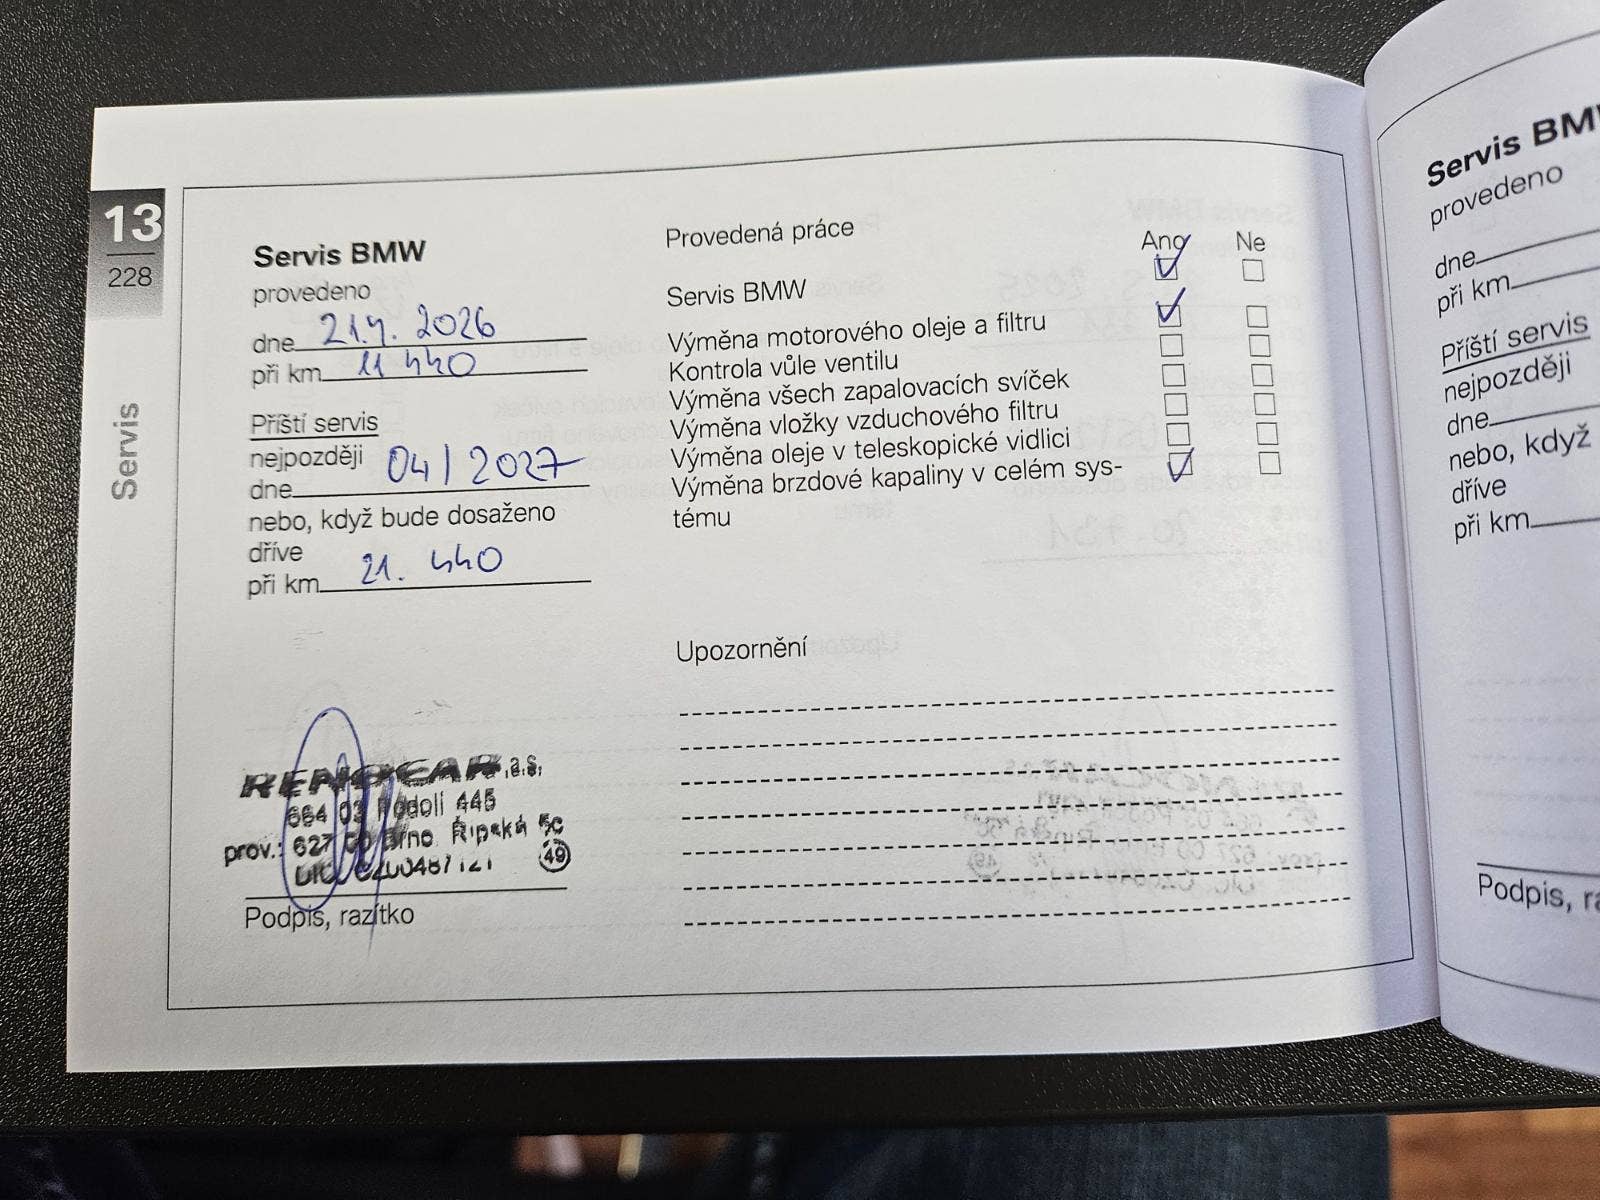 13
228
Servis
Servis BMW
provedeno
dne 21.4. 2026
při km 11 440
Příští servis
nejpozději
dne 04/2027
nebo, když bude dosaženo
dříve
při km 21. 440
Provedená práce
Ano Ne
Servis BMW
Výměna motorového oleje a filtru
Kontrola vůle ventilu
Výměna všech zapalovacích svíček
Výměna vložky vzduchového filtru
Výměna oleje v teleskopické vidlici
Výměna brzdové kapaliny v celém sys-
tému
Upozornění
RENOCAR, a.s.
664 03 Podolí 445
prov.: 627 00 Brno Řípská 5c
DIČ CZ00487121
49
Podpis, razítko
Servis
provedeno
dne
při km
Příští servis
nejpozději
dne
nebo, když
dříve
při km
Podpis,